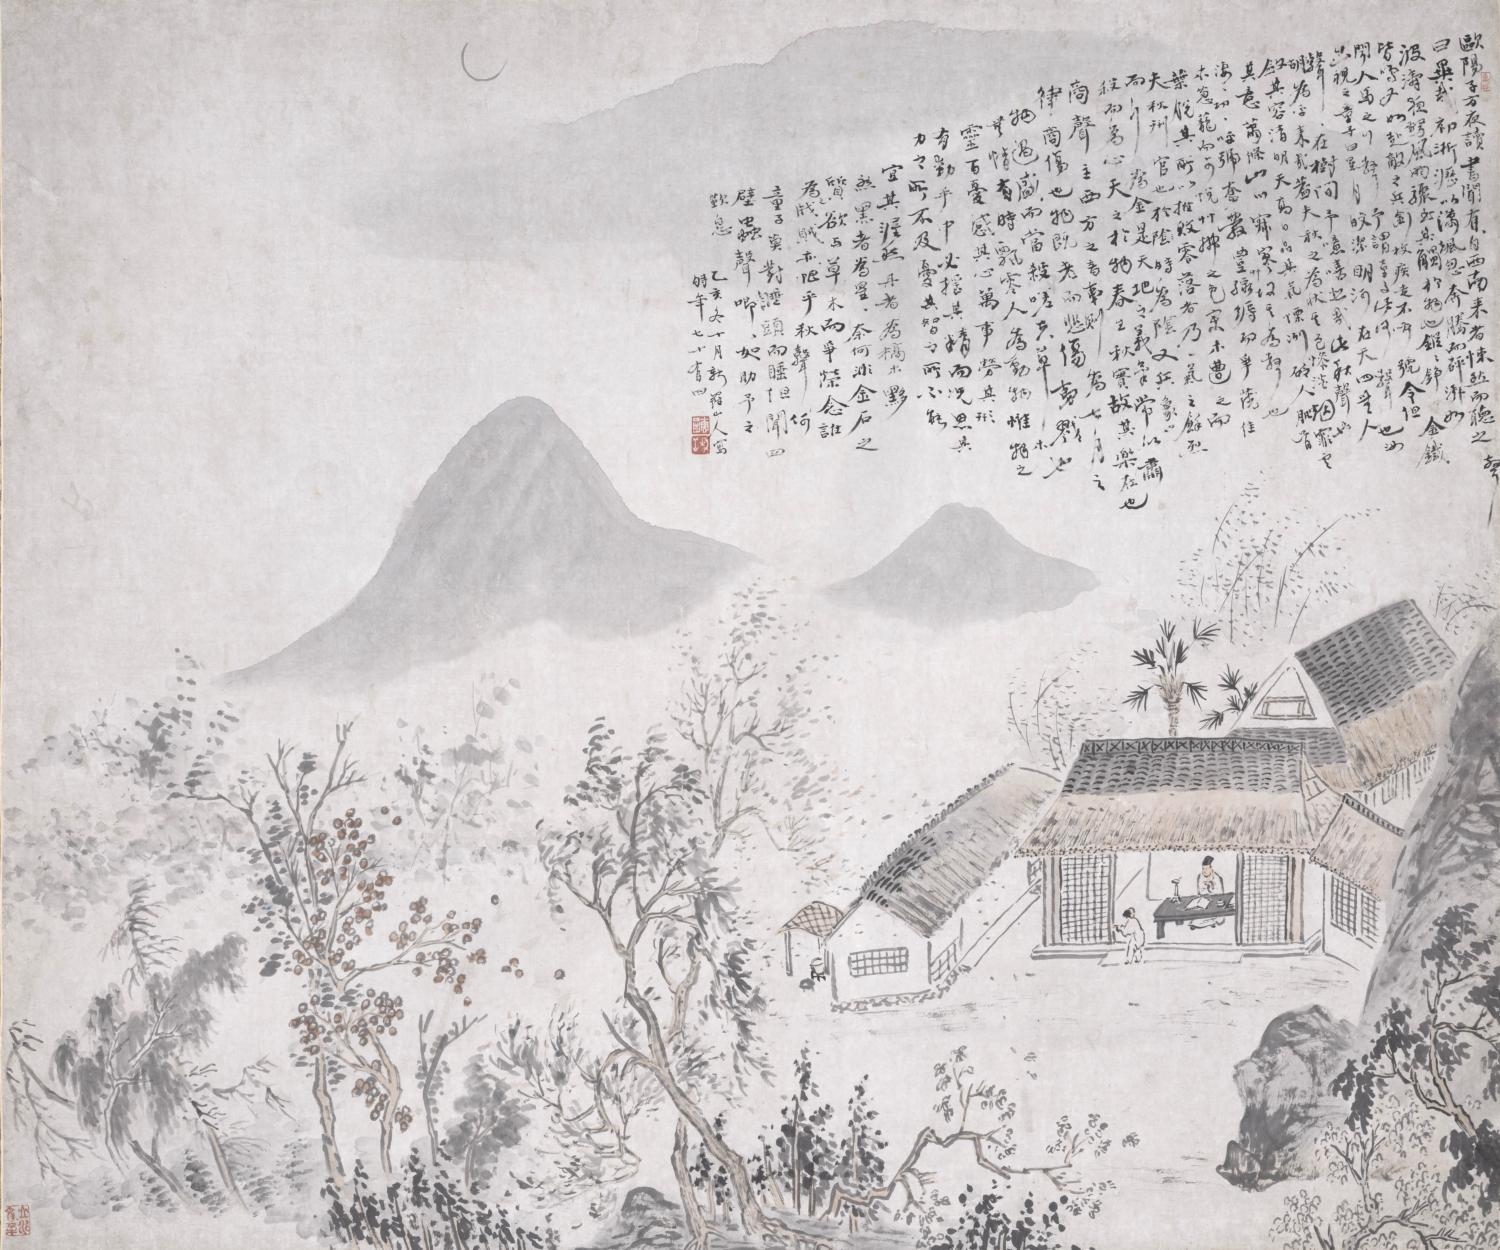 歐陽子方夜讀書聞有自西南来者悚然而聽之聲
曰異哉初淅瀝以蕭颯忽奔騰而砰湃如
波濤夜驚風雨驟至其觸於物也鏦鏦錚錚金鐵
皆鳴又如赴敵之兵銜枚疾走不聞號令但
聞人馬之行聲予謂童子此何聲也汝
出視之童子曰星月皎潔明河在天四無人
聲聲在樹間予曰噫嘻悲哉此秋聲也
胡為乎来哉蓋夫秋之為狀其色慘淡烟霏雲
斂其容清明天高日晶其氣慄冽砭人肌骨
其意蕭條山川寂寥故其為聲也
淒淒切切呼號奮發豐草綠縟而爭茂佳
木葱籠而可悅草拂之而色變木遭之而
葉脫其所以摧敗零落者乃一氣之餘烈
夫秋刑官也於時為陰又兵象也
而行為金是天地之義氣常以肅
殺而為心天之於物春生秋實故其樂在也
商聲主西方之音夷則為七月之
律商傷也物既老而悲傷夷戮也
物過盛而當殺嗟夫草木
無情有時飄零人為動物惟物之
靈百憂感其心萬事勞其形
有動乎中必搖其精而况思其
力之所不及憂其智之所不能
宜其渥然丹者為槁木黟
然黑者為星奈何非金石之
質欲與草木而爭榮念誰
為之戕賊亦何恨乎秋聲
童子莫對垂頭而睡但聞四
壁蟲聲唧唧如助予之
歎息
乙亥冬十月新羅山人寫
時年七十有四